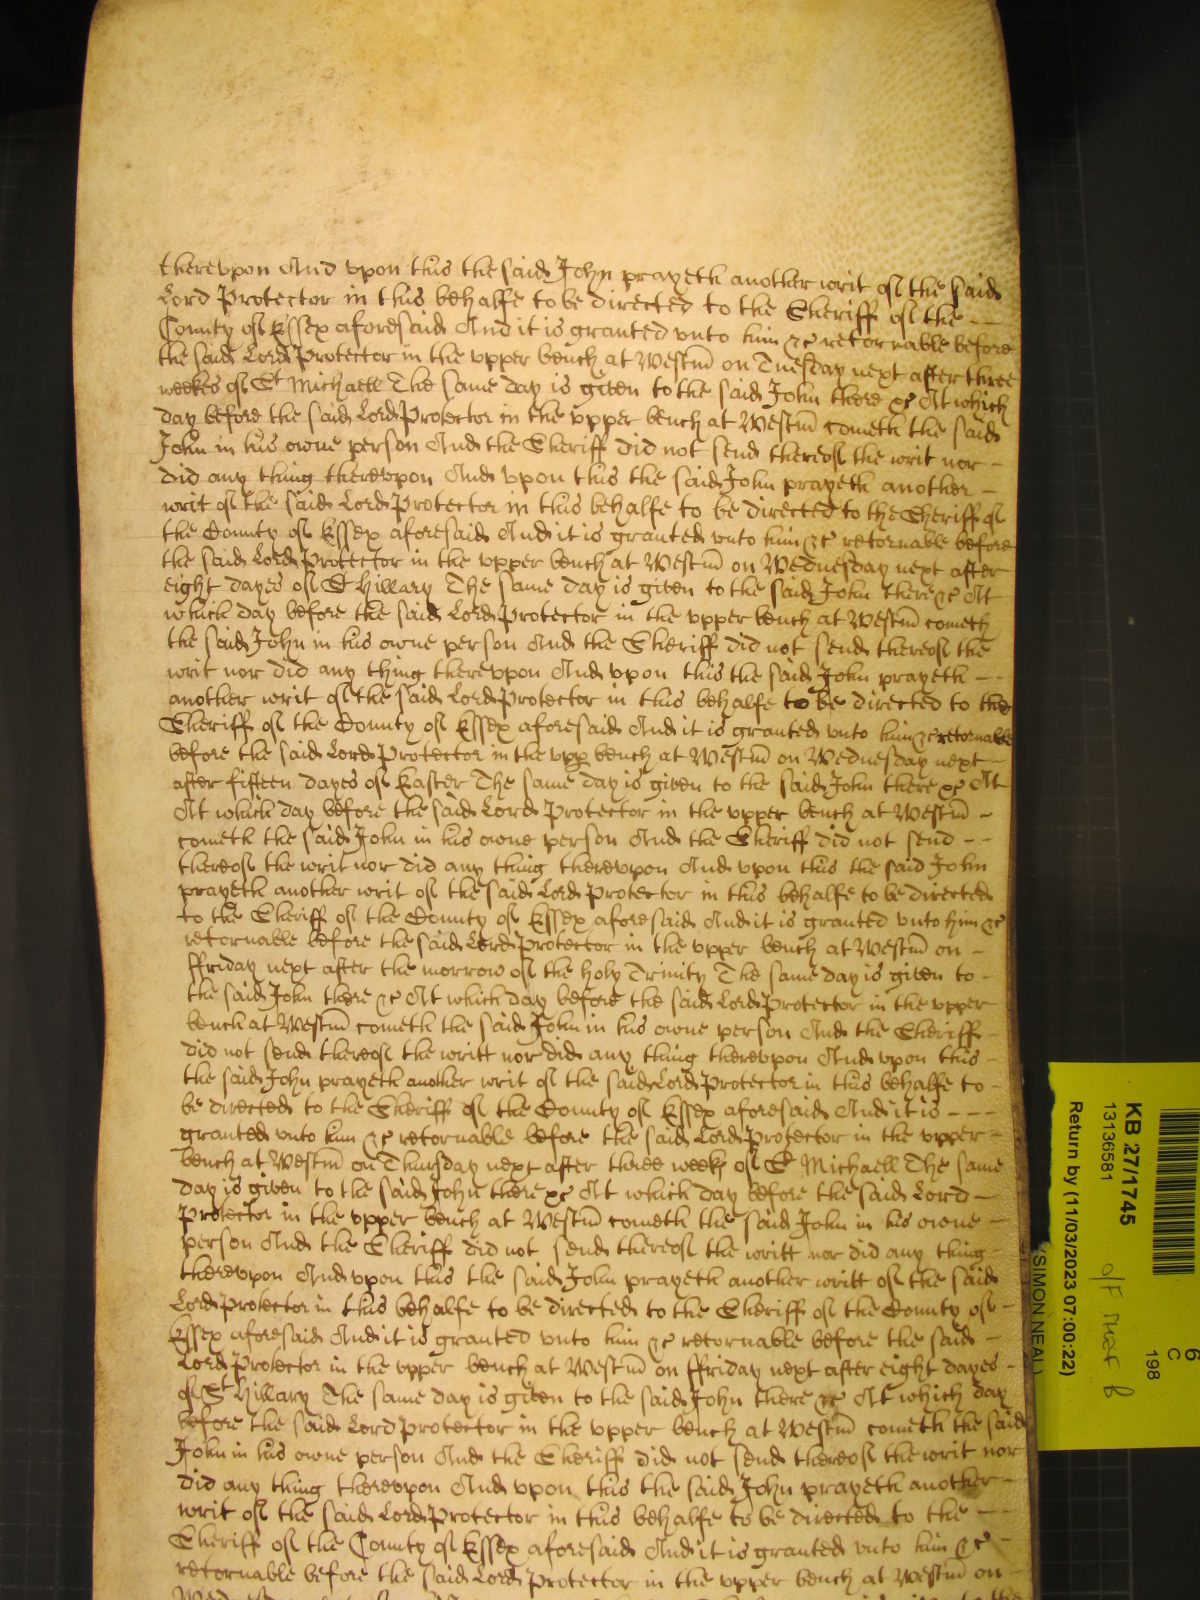 therevpon And vpon this the said John prayeth another writ of the said
Lord Protector in this behalfe to be directed to the Sheriff of the --
County of Essex aforesaid And it is granted vnto him &c retornable before
the said Lord Protector in the vpper bench at Westm̄ on Tuesday next after three
weekes of St Michaell The same day is given to the said John there &c At which
day before the said Lord Protector in the vpper bench at Westm̄ cometh the said
John in his owne person And the Sheriff did not send thereof the writ nor -
did any thing therevpon And vpon this the said John prayeth another -
writ of the said Lord Protector in this behalfe to be directed to the Sheriff of
the County of Essex aforesaid And it is granted vnto him &c retornable before
the said Lord Protector in the vpper bench at Westm̄ on Wednesday next after
eight dayes of St Hillary The same day is given to the said John there &c At
which day before the said Lord Protector in the vpper bench at Westm̄ cometh
the said John in his owne person And the Sheriff did not send thereof the
writ nor did any thing therevpon And vpon this the said John prayeth --
another writ of the said Lord Protector in this behalfe to be directed to the
Sheriff of the County of Essex aforesaid And it is granted vnto him &c retornable
before the said Lord Protector in the vpp bench at Westm̄ on Wednesday next -
after fifteen dayes of Easter The same day is given to the said John there &c At
At which day before the said Lord Protector in the vpper bench at Westm̄ -
cometh the said John in his owne person And the Sheriff did not send --
thereof the writ nor did any thing therevpon And vpon this the said John
prayeth another writ of the said Lord Protector in this behalfe to be directed
to the Sheriff of the County of Essex aforesaid And it is granted vnto him &c
retornable before the said Lord Protector in the vpper bench at Westm̄ on -
ffriday next after the morrow of the holy Trinity The same day is given to -
the said John there &c At which day before the said Lord Protector in the vpper
bench at Westm̄ cometh the said John in his owne person And the Sheriff
did not send thereof the writt nor did any thing therevpon And vpon this -
the said John prayeth another writ of the said Lord Protector in this behalfe to -
be directed to the Sheriff of the County of Essex aforesaid And it is ---
granted vnto him &c retornable before the said Lord Protector in the vpper -
bench at Westm̄ on Thursday next after three weeks of St Michaell The same
day is given to the said John there &c At which day before the said Lord -
Protector in the vpper bench at Westm̄ cometh the said John in his owne -
person And the Sheriff did not send thereof the writt nor did any thing -
therevpon And vpon this the said John prayeth another writt of the said
Lord Protector in this behalfe to be directed to the Sheriff of the County of -
Essex aforesaid And it is granted vnto him &c retornable before the said -
Lord Protector in the vpper bench at Westm̄ on ffriday next after eight dayes -
of St Hillary The same day is given to the said John there &c At which day
before the said Lord Protector in the vpper bench at Westm̄ cometh the said
John in his owne person And the Sheriff did not send thereof the writ nor
did any thing therevpon And vpon this the said John prayeth another -
writ of the said Lord Protector in this behalfe to be directed to the --
Sheriff of the County of Essex aforesaid And it is granted vnto him &c -
retornable before the said Lord Protector in the vpper bench at Westm̄ on -
KB 27/1745
13136581
Return by (11/03/2023 07:00:22)
(SIMON NEAL)
6
C
198